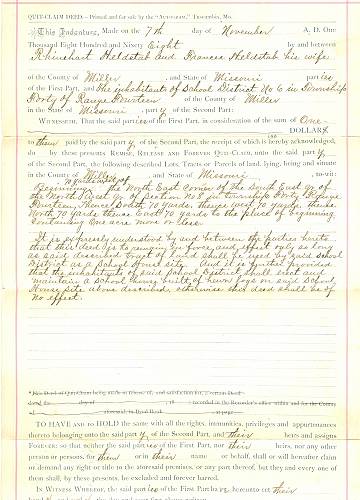 QUIT-CLAIM DEED.—Printed and for sale by the "AUTOGRAM," Tuscumbia, Mo.
This Indenture, Made on the 7th day of November A. D. One
Thousand Eight Hundred and Ninety Eight by and between
Rhinehart Heldstab and Francis Heldstab his wife
of the County of Miller and State of Missouri parties
of the First Part, and the inhabitants of School District No 6 in Township
Forty of Range Fourteen of the County of Miller
in the State of Missouri part y of the Second Part:
WITNESSETH, That the said parties of the First Part, in consideration of the sum of One
DOLLARS
to them paid by the said part y of the Second Part, the receipt of which is hereby acknowledged,
do by these presents REMISE, RELEASE AND FOREVER QUIT-CLAIM, unto the said part y
of the Second Part, the following described Lots, Tracts or Parcels of land, lying, being and situate
in the County of Miller and State of Missouri, to-wit:
Beginning 70 yards west of the North East Corner of the South East qr of
the North West qr of Section No 8 in Township Forty Range
Fourteen, thence South 70 yards, thence west 70 yards, thence
North 70 yards thence East 70 yards to the place of beginning
Containing One acre more or less.
It is expressly understood by and between the parties hereto
that this deed is to remain in force and effect only so long
as said described tract of land shall be used by said School
District as a School House site. And it is further provided
that the inhabitants of said School District shall erect and
maintain a School house built of hewn logs on said School
House site above described, otherwise this deed shall be of
no effect.
TO HAVE and to HOLD the same with all the rights, immunities, privileges and appurtenances
thereto belonging unto the said part y of the Second Part, and their heirs and assigns
FOREVER: so that neither the said parties of the First Part, nor their heirs, nor any other
person or persons, for them or in their name or behalf, shall or will hereafter claim
or demand any right or title to the aforesaid premises, or any part thereof, but they and every one of
them shall, by these presents, be excluded and forever barred.
IN WITNESS WHEREOF, the said parties of the First Part have hereunto set their